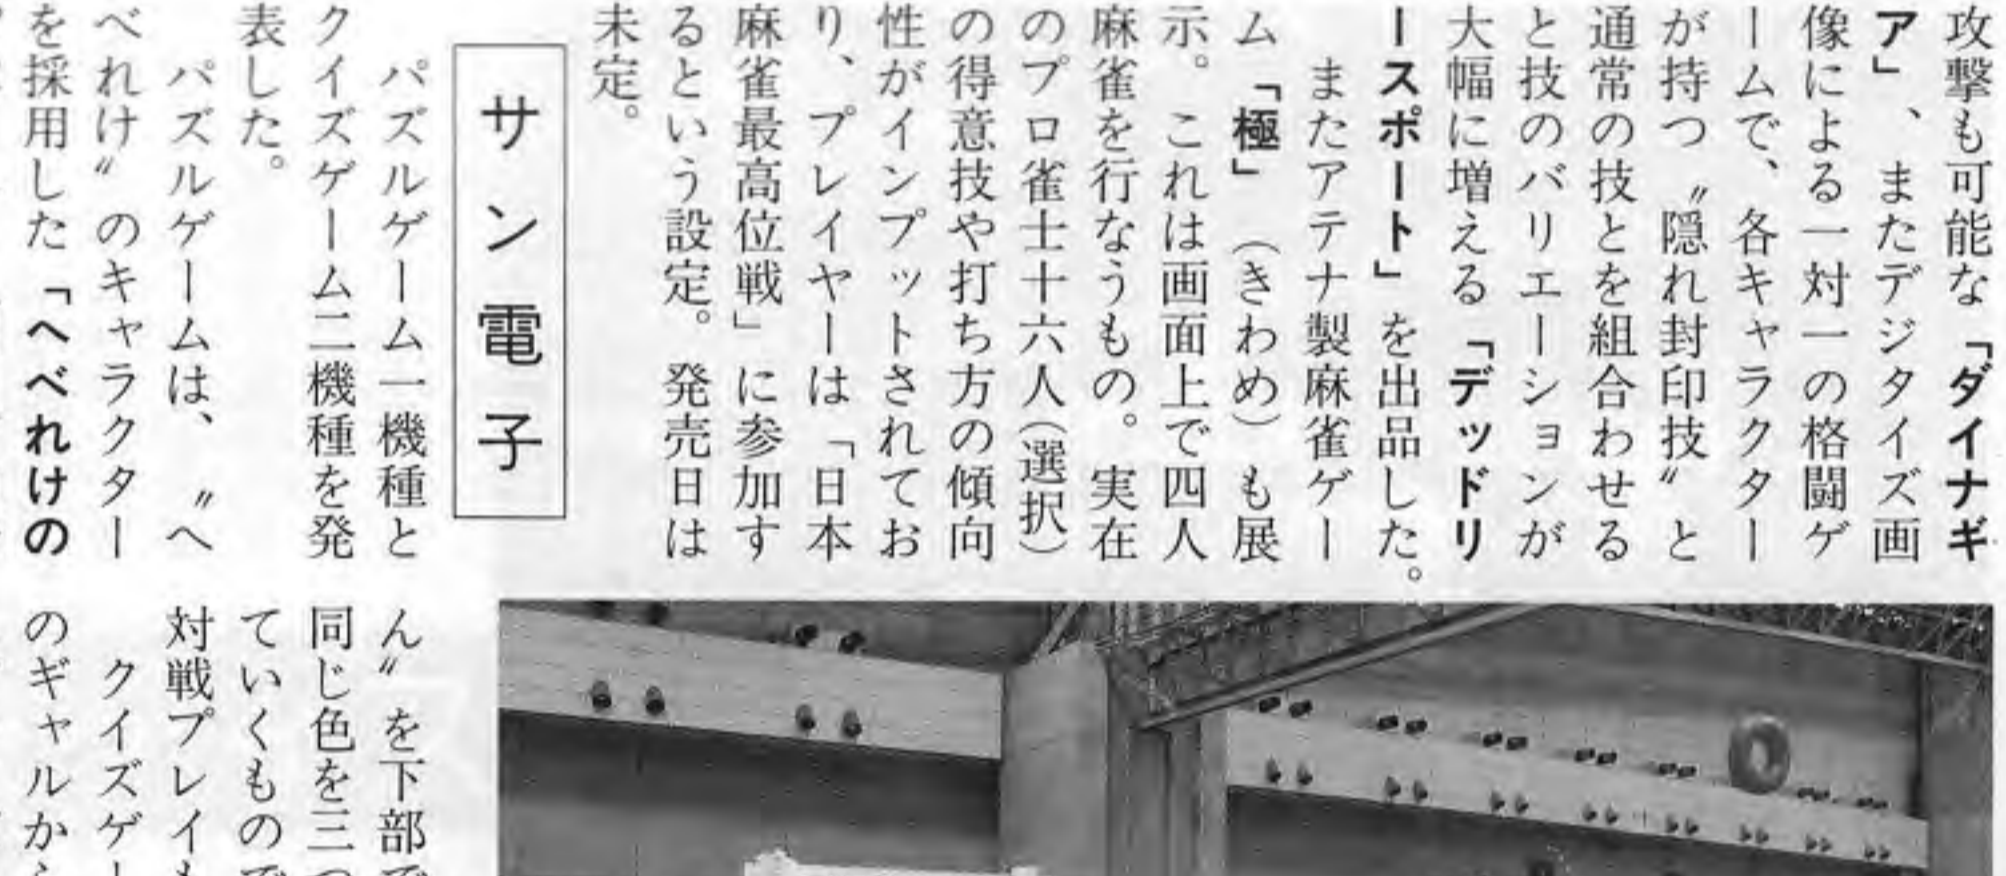 攻撃も可能な「ダイナギ
ア」、またデジタイズ画
像による一対一の格闘ゲ
ームで、各キャラクター
が持つ〝隠れ封印技〟と
通常の技とを組合わせる
と技のバリエーションが
大幅に増える「デッドリ
ースポート」を出品した。
またアテナ製麻雀ゲー
ム「極」（きわめ）も展
示。これは画面上で四人
麻雀を行なうもの。実在
のプロ雀士十六人（選択）
の得意技や打ち方の傾向
性がインプットされてお
り、プレイヤーは「日本
麻雀最高位戦」に参加す
るという設定。発売日は
未定。
サン電子
パズルゲーム一機種と
クイズゲーム二機種を発
表した。
パズルゲームは、〝へ
べれけ〟のキャラクター
を採用した「へべれけの
ん〟を下部で
同じ色を三つ
ていくもので
対戦プレイも
クイズゲー
のギャルから